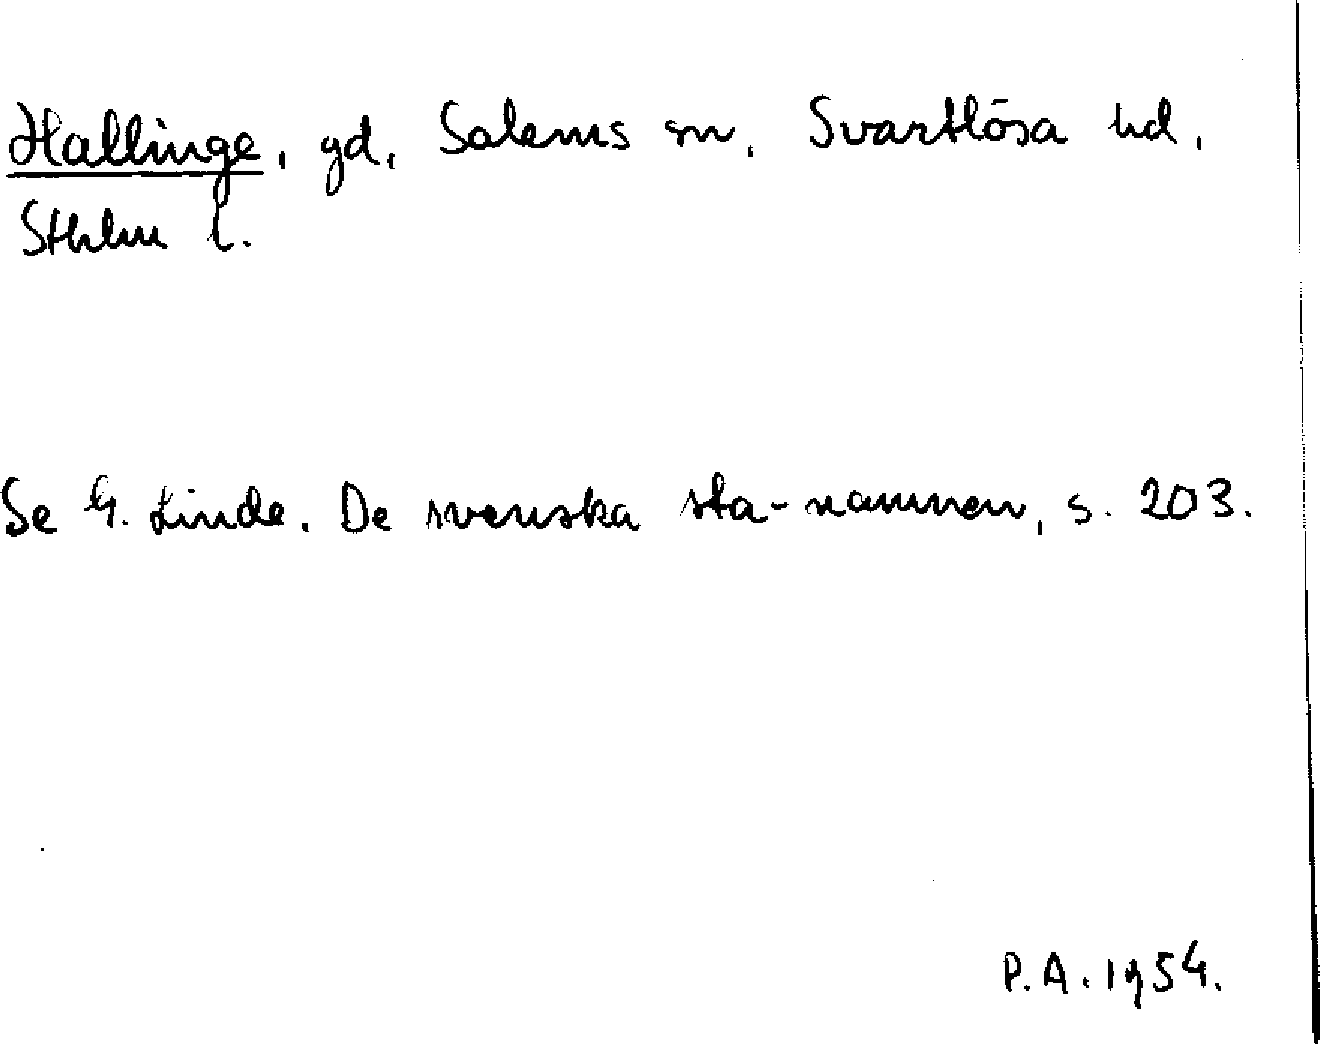 Hallinge, gd, Salems sn, Svartlösa hd,
Sthlm l.
Se G. Linde. De svenska sta-namnen, s. 203.
P.A. 1954.